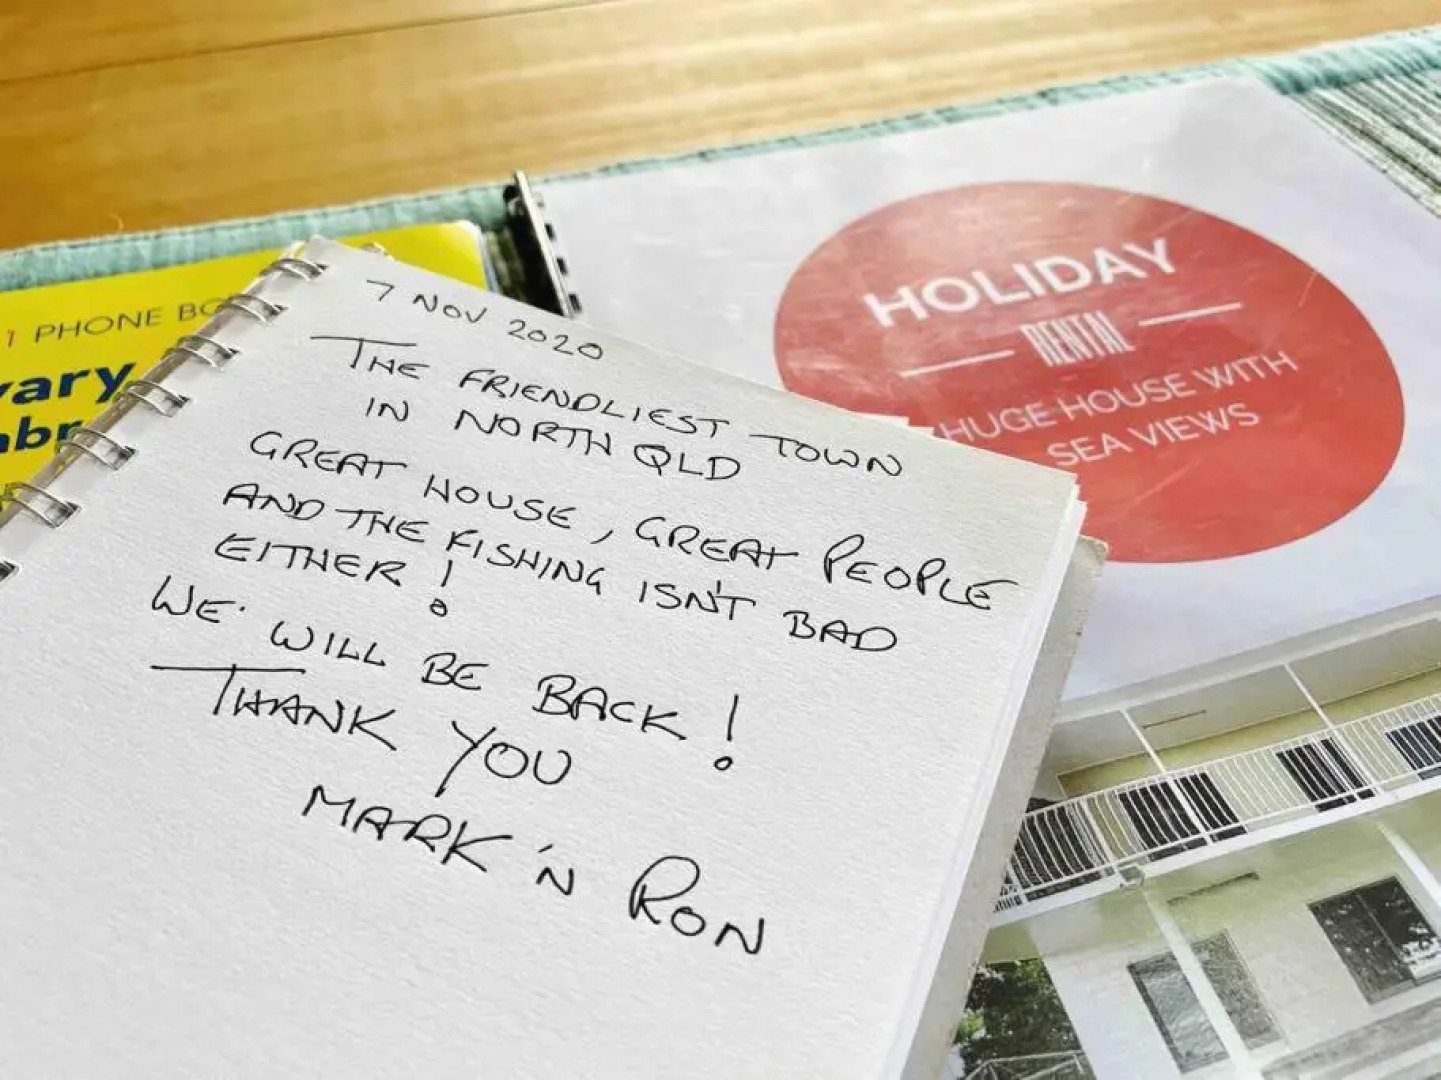 7 NOV 2020
THE FRIENDLIEST TOWN
IN NORTH QLD
GREAT HOUSE, GREAT PEOPLE
AND THE FISHING ISN'T BAD
EITHER!
WE WILL BE BACK!
THANK YOU
MARK 'N RON
1 PHONE BO
vary
abr
HOLIDAY
RENTAL
HUGE HOUSE WITH
SEA VIEWS